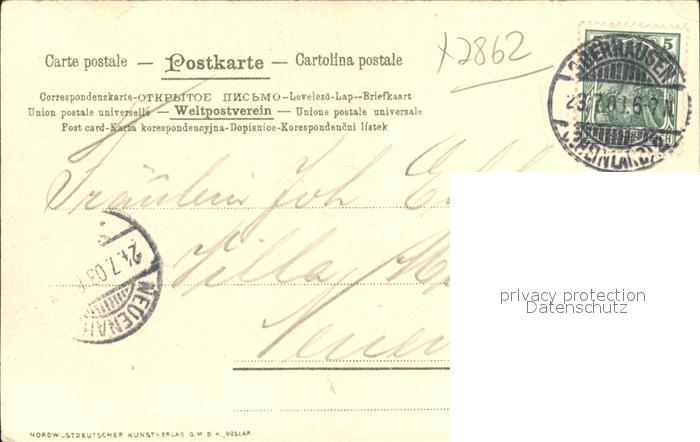 Carte postale — Postkarte — Cartolina postale
×2862
Correspondenzkarte-ОТКРЫТОЕ ПИСЬМО-Levelező-Lap--Briefkaart
Union postale universelle — Weltpostverein — Unione postale universale
Post card-Karta korespondencyjna-Dopisnice-Korespondenční lístek
5
OBERHAUSEN
(RHEINLAND)
Fräulein Joh
Villa
24.7.03
NEUENAH
privacy protection
Datenschutz
NORDW_STDEUTSCHER KUNSTVERLAG G.M.B.H. GOSLAR.